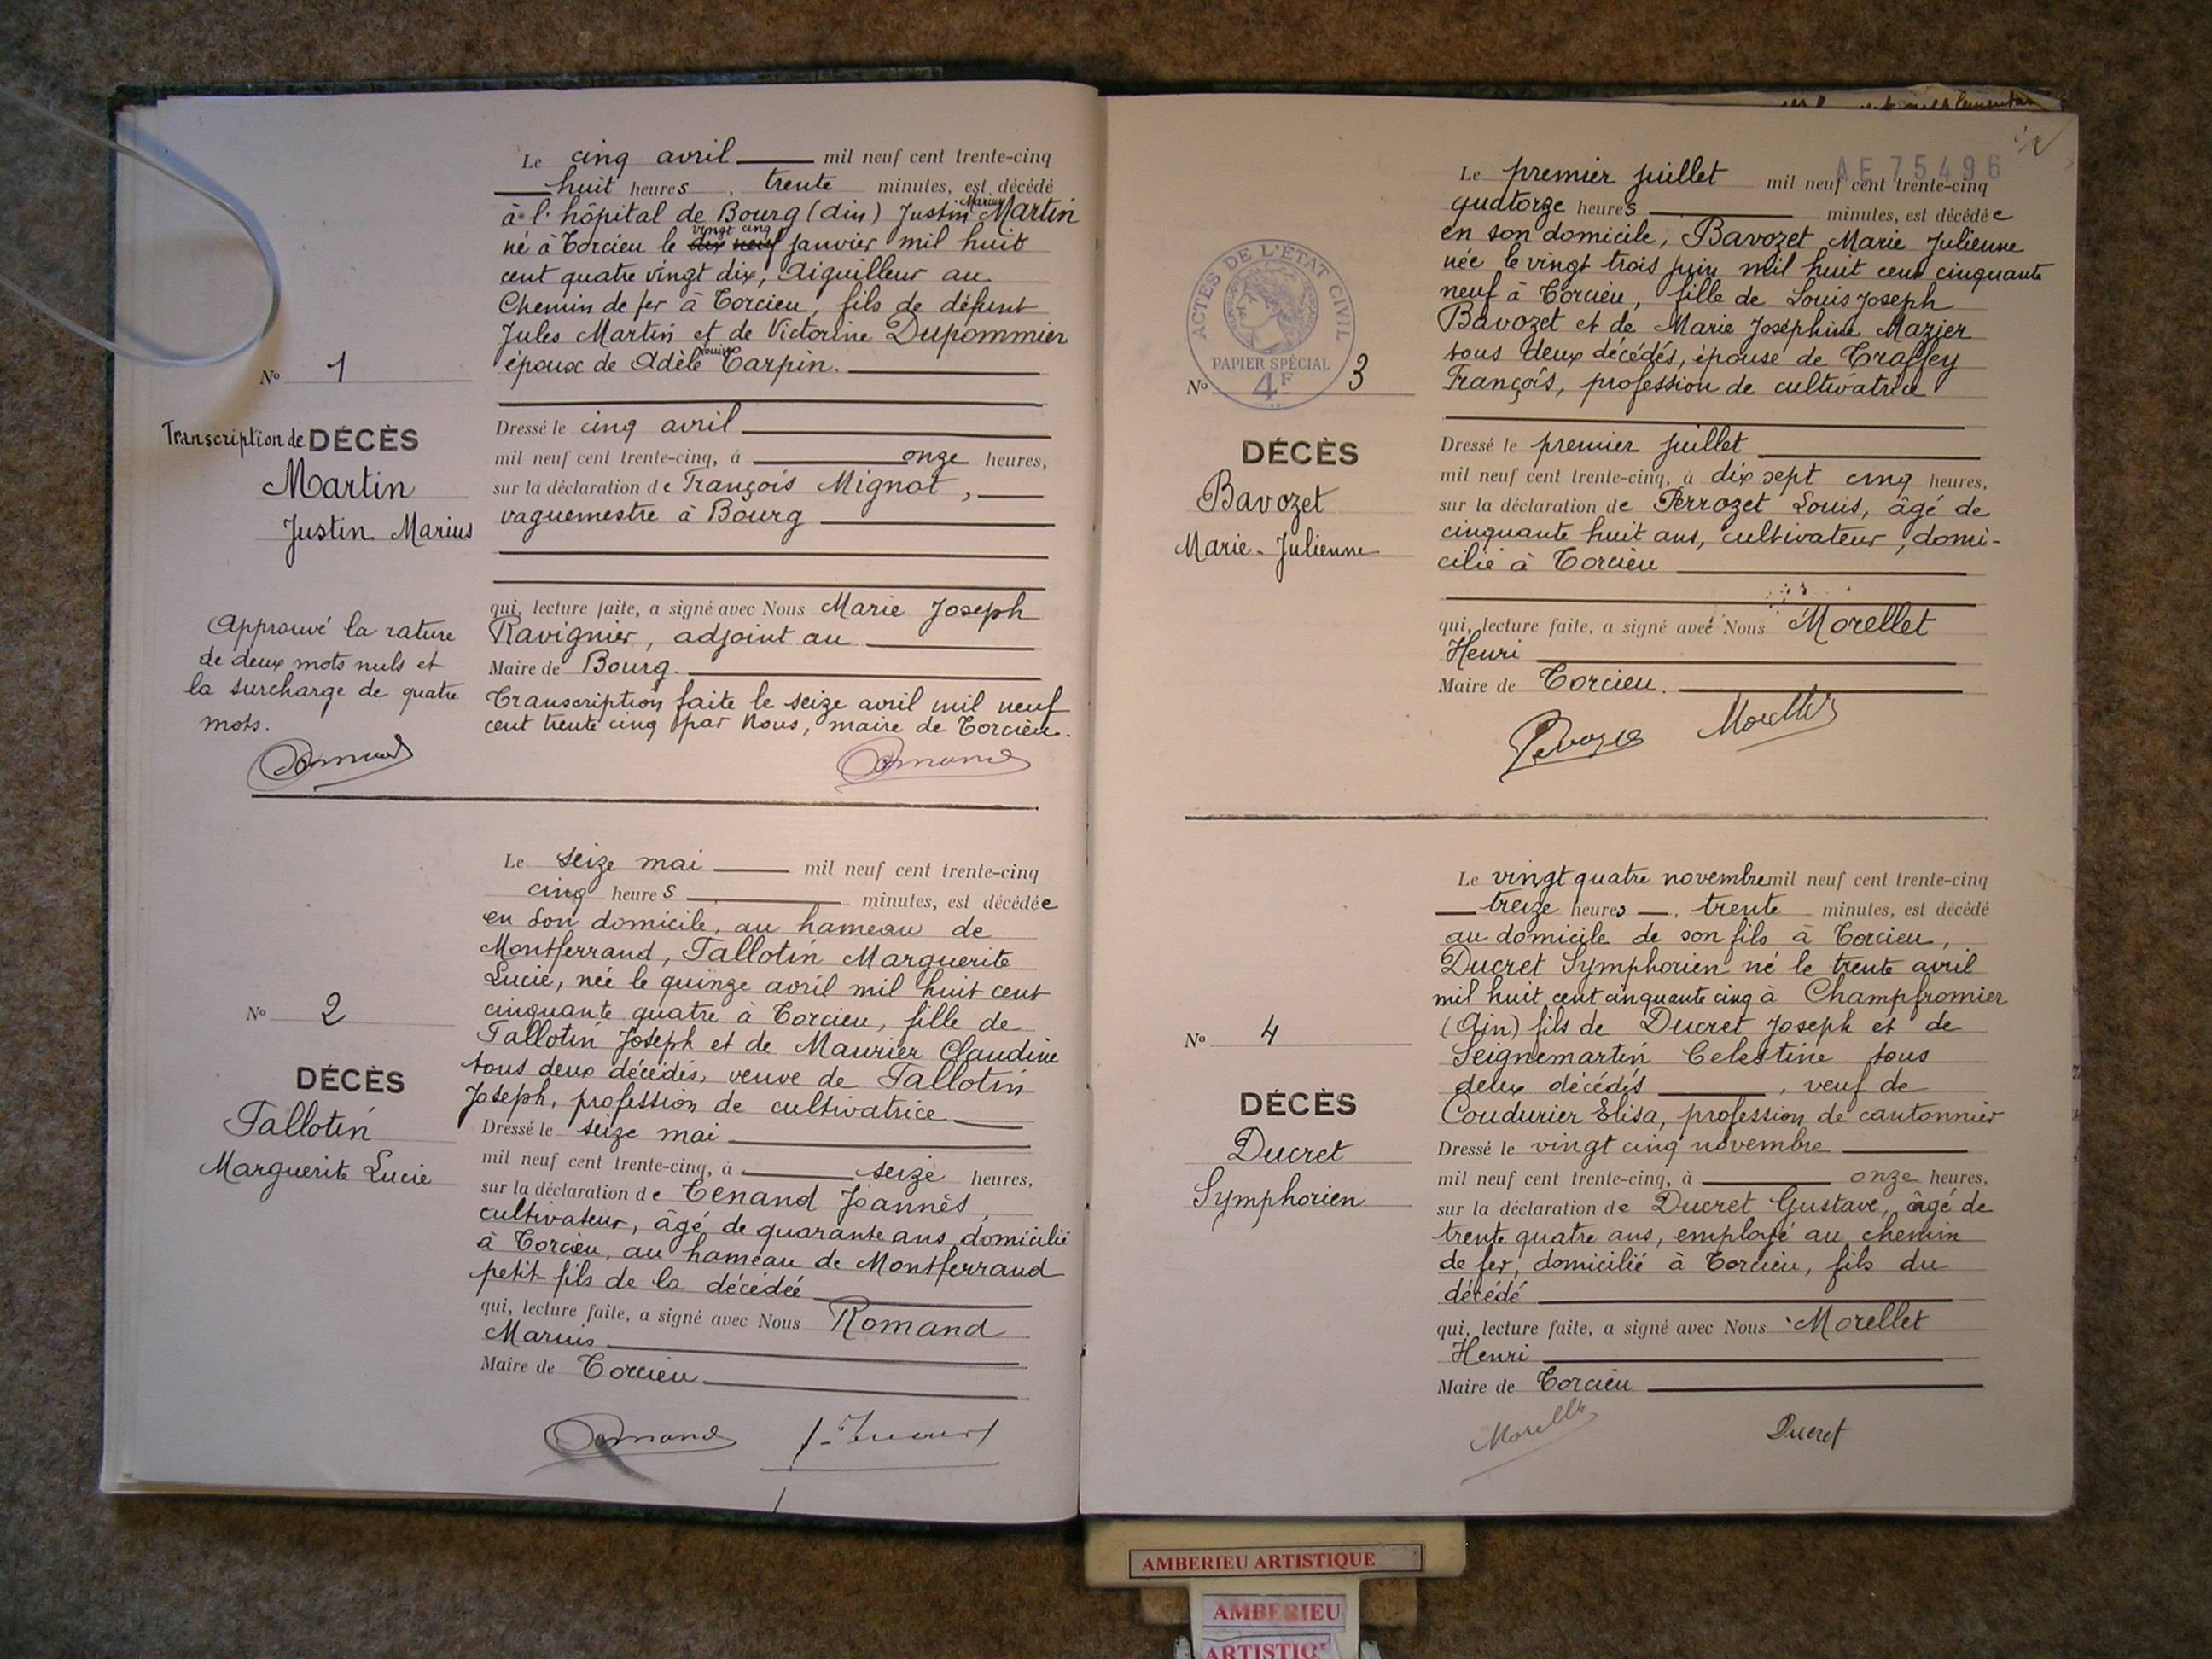 Le cinq avril mil neuf cent trente-cinq
huit heures, trente minutes, est décédé
à l'hôpital de Bourg (Ain) Justin Marius Martin
né à Torcieu le dix neuf vingt cinq janvier mil huit
cent quatre vingt dix, Aiguilleur au
Chemin de fer à Torcieu, fils de défunt
Jules Martin et de Victorine Dupommier
époux de Adèle Louise Tarpin.
N° 1
Transcription de DÉCÈS
Martin
Justin Marius
Dressé le cinq avril
mil neuf cent trente-cinq, à onze heures,
sur la déclaration de François Mignot,
vaguemestre à Bourg
qui, lecture faite, a signé avec Nous Marie Joseph
Ravignier, adjoint au
Maire de Bourg.
Transcription faite le seize avril mil neuf
cent trente cinq par Nous, maire de Torcieu.
Approuvé la rature
de deux mots nuls et
la surcharge de quatre
mots.
Le seize mai mil neuf cent trente-cinq
cinq heures minutes, est décédée
en son domicile, au hameau de
Montferrand, Tallotin Marguerite
Lucie, née le quinze avril mil huit cent
cinquante quatre à Torcieu, fille de
Tallotin Joseph et de Maurier Claudine
tous deux décédés, veuve de Tallotin
Joseph, profession de cultivatrice
N° 2
DÉCÈS
Tallotin
Marguerite Lucie
Dressé le seize mai
mil neuf cent trente-cinq, à seize heures,
sur la déclaration de Tenand Joannès,
cultivateur, âgé de quarante ans, domicilié
à Torcieu, au hameau de Montferrand
petit-fils de la décédée
qui, lecture faite, a signé avec Nous Romand
Marius
Maire de Torcieu
AE 75496
Le premier juillet mil neuf cent trente-cinq
quatorze heures minutes, est décédée
en son domicile, Bavozet Marie Julienne
née le vingt trois juin mil huit cent cinquante
neuf à Torcieu, fille de Louis Joseph
Bavozet et de Marie Joséphine Mazier
tous deux décédés, épouse de Traffey
François, profession de cultivatrice
ACTES DE L'ÉTAT CIVIL
PAPIER SPÉCIAL
4F
N° 3
DÉCÈS
Bavozet
Marie-Julienne
Dressé le premier juillet
mil neuf cent trente-cinq, à dix sept cinq heures,
sur la déclaration de Perrozet Louis, âgé de
cinquante huit ans, cultivateur, domi-
cilié à Torcieu
qui, lecture faite, a signé avec Nous Morellet
Henri
Maire de Torcieu.
Le vingt quatre novembre mil neuf cent trente-cinq
treize heures, trente minutes, est décédé
au domicile de son fils à Torcieu,
Ducret Symphorien né le trente avril
mil huit cent cinquante cinq à Champfromier
(Ain) fils de Ducret Joseph et de
Seignemartin Celestine tous
deux décédés, veuf de
Coudurier Elisa, profession de cantonnier
N° 4
DÉCÈS
Ducret
Symphorien
Dressé le vingt cinq novembre
mil neuf cent trente-cinq, à onze heures,
sur la déclaration de Ducret Gustave, âgé de
trente quatre ans, employé au chemin
de fer, domicilié à Torcieu, fils du
décédé
qui, lecture faite, a signé avec Nous Morellet
Henri
Maire de Torcieu
Ducret
AMBERIEU ARTISTIQUE
AMBERIEU
ARTISTIQ